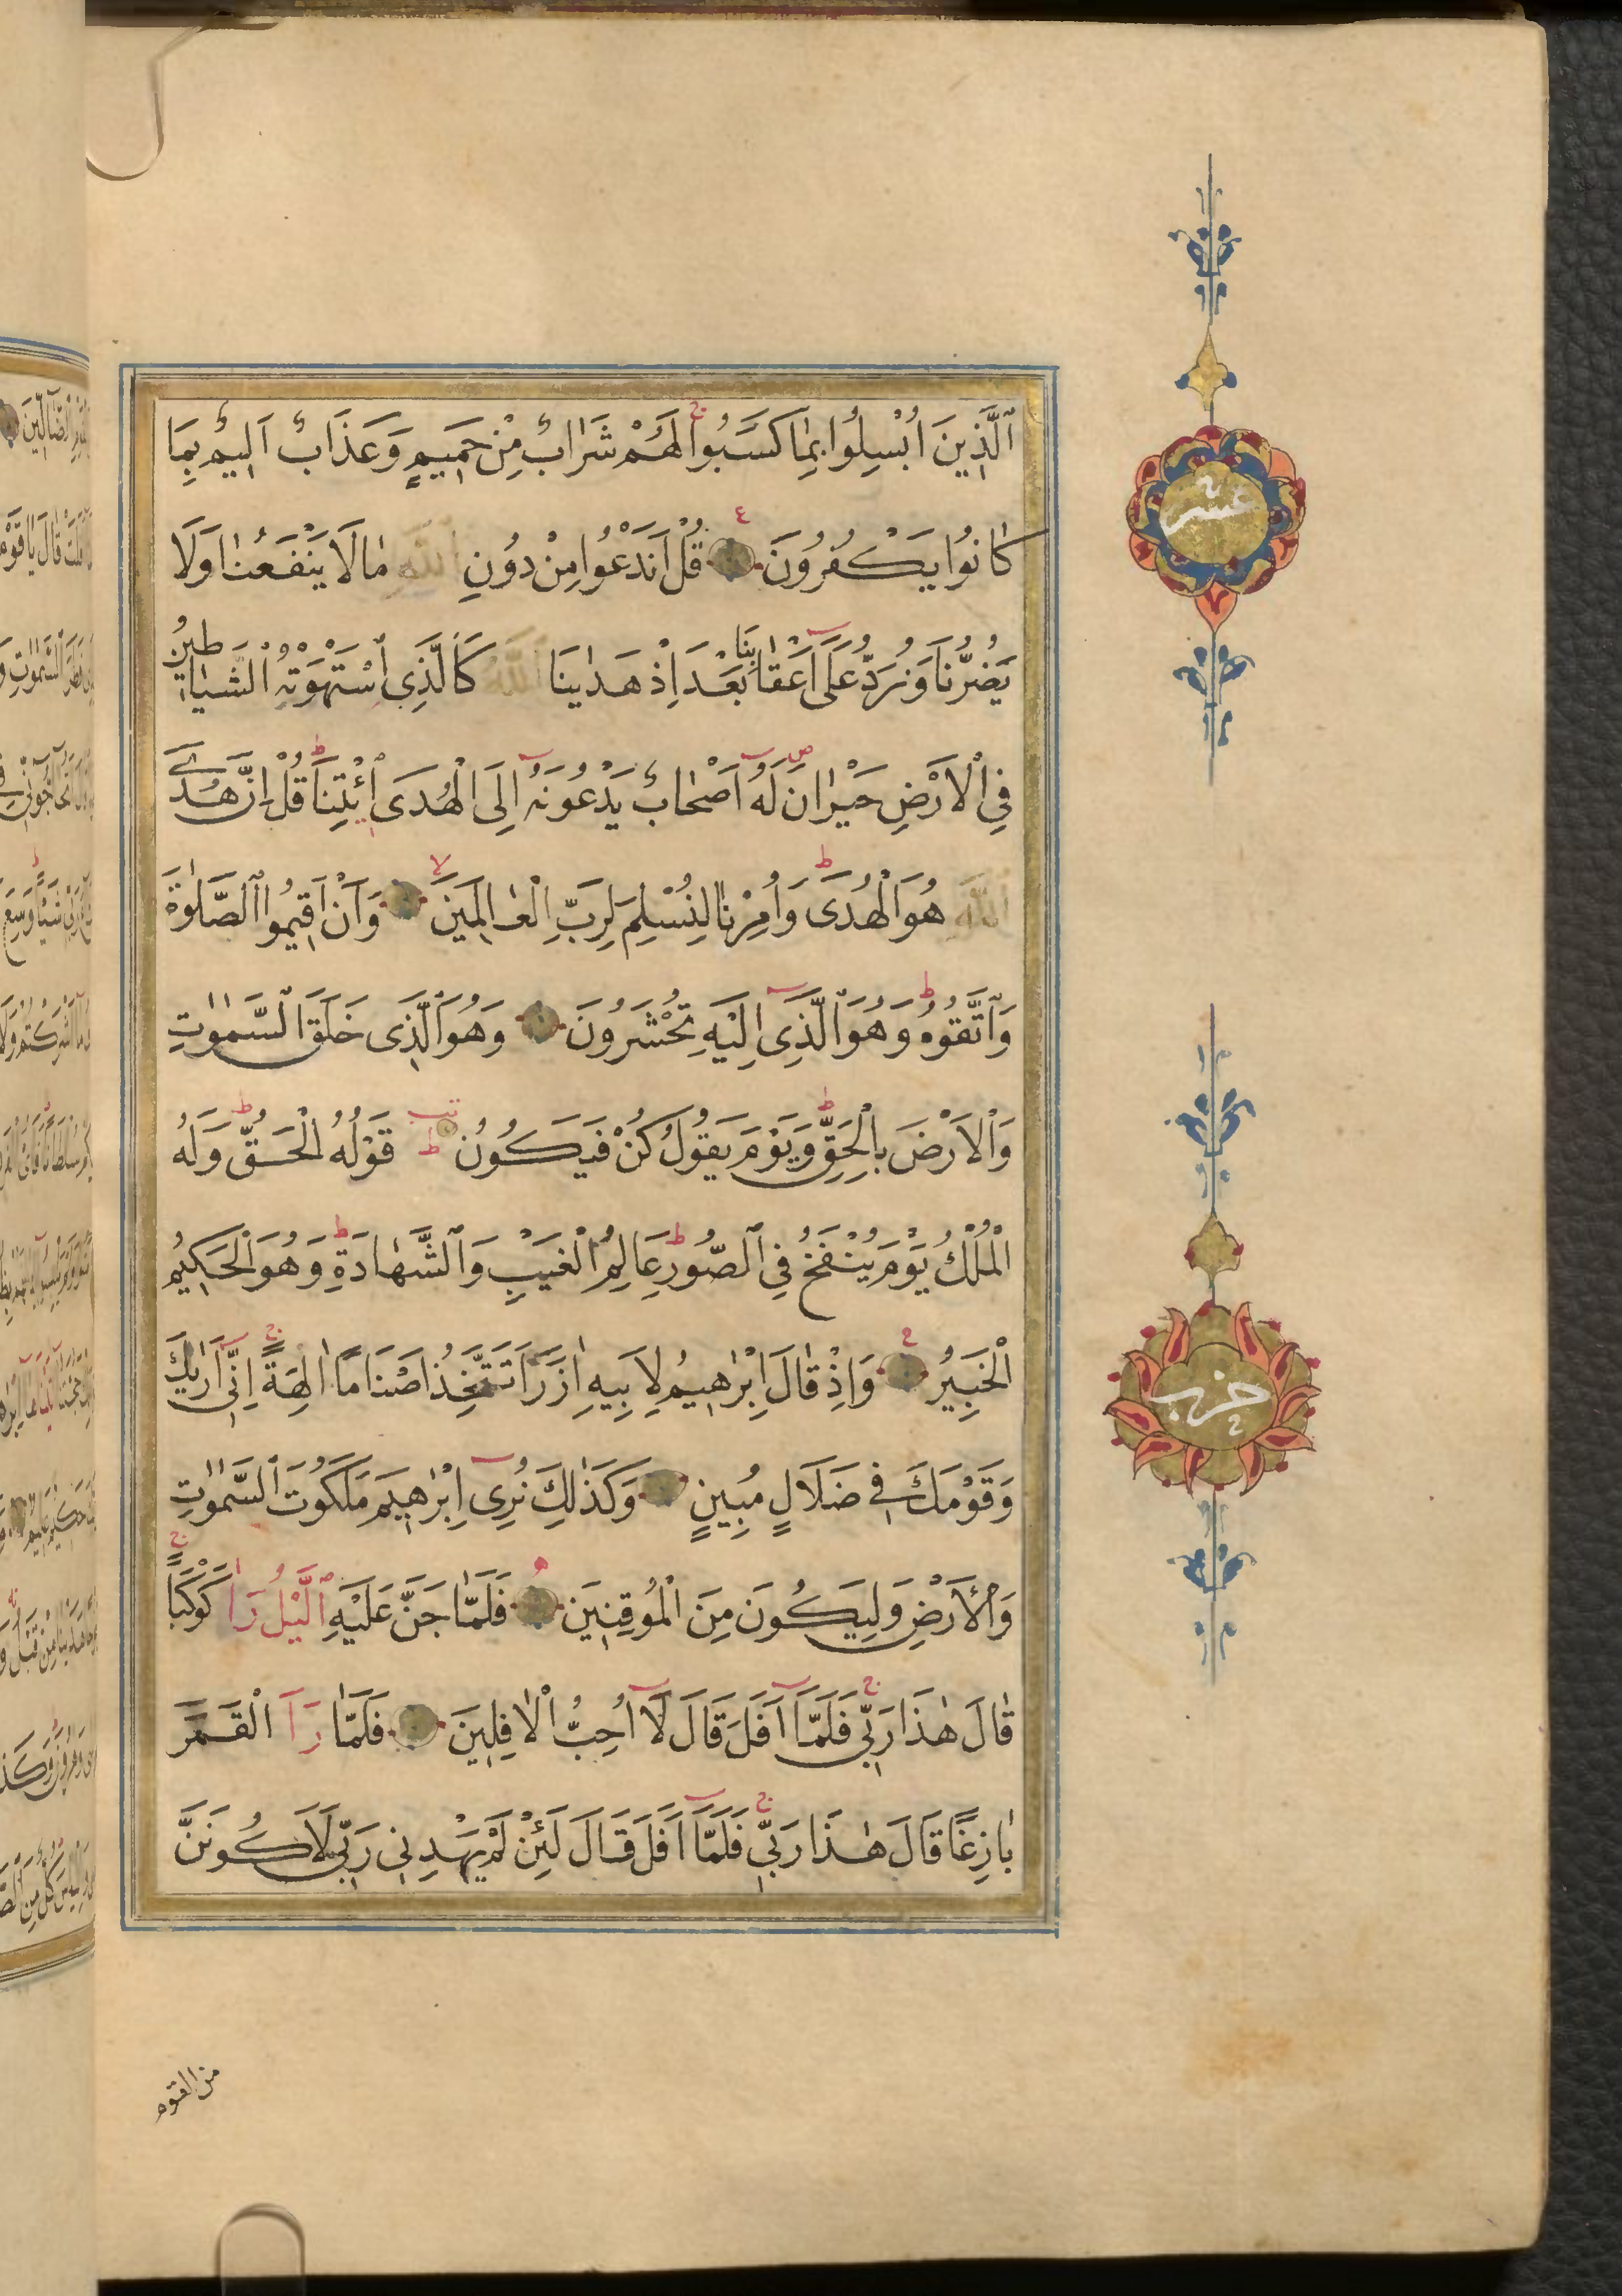 اَلَّذِينَ اُبْسِلُوا بِمَا كَسَبُوا لَهُمْ شَرَابٌ مِنْ حَمِيمٍ وَعَذَابٌ اَلِيمٌ بِمَا
كَانُوا يَكْفُرُونَ قُلْ اَنَدْعُوا مِنْ دُونِ اللّٰهِ مَا لَا يَنْفَعُنَا وَلَا
يَضُرُّنَا وَنُرَدُّ عَلَٓى اَعْقَابِنَا بَعْدَ اِذْ هَدٰينَا اللّٰهُ كَالَّذِى اسْتَهْوَتْهُ الشَّيَاطِينُ
فِى الْاَرْضِ حَيْرَانَ لَهُٓ اَصْحَابٌ يَدْعُونَهُٓ اِلَى الْهُدَى ائْتِنَا قُلْ اِنَّ هُدَى
اللّٰهِ هُوَ الْهُدٰى وَاُمِرْنَا لِنُسْلِمَ لِرَبِّ الْعَالَمِينَ وَاَنْ اَقِيمُوا الصَّلٰوةَ
وَاتَّقُوهُ وَهُوَ الَّذِٓى اِلَيْهِ تُحْشَرُونَ وَهُوَ الَّذِى خَلَقَ السَّمٰوَاتِ
وَالْاَرْضَ بِالْحَقِّ وَيَوْمَ يَقُولُ كُنْ فَيَكُونُ قَوْلُهُ الْحَقُّ وَلَهُ
الْمُلْكُ يَوْمَ يُنْفَخُ فِى الصُّورِ عَالِمُ الْغَيْبِ وَالشَّهَادَةِ وَهُوَ الْحَكِيمُ
الْخَبِيرُ وَاِذْ قَالَ اِبْرٰهِيمُ لِاَبِيهِ اٰزَرَ اَتَتَّخِذُ اَصْنَامًا اٰلِهَةً اِنِّٓى اَرٰيكَ
وَقَوْمَكَ فِى ضَلَالٍ مُبِينٍ وَكَذٰلِكَ نُرِٓى اِبْرٰهِيمَ مَلَكُوتَ السَّمٰوَاتِ
وَالْاَرْضِ وَلِيَكُونَ مِنَ الْمُوقِنِينَ فَلَمَّا جَنَّ عَلَيْهِ الَّيْلُ رَاٰ كَوْكَبًا
قَالَ هٰذَا رَبِّى فَلَمَّٓا اَفَلَ قَالَ لَٓا اُحِبُّ الْاٰفِلِينَ فَلَمَّا رَاَ الْقَمَرَ
بَازِغًا قَالَ هٰذَا رَبِّى فَلَمَّٓا اَفَلَ قَالَ لَئِنْ لَمْ يَهْدِنِى رَبِّى لَاَكُونَنَّ
من القوم
عشر
حزب